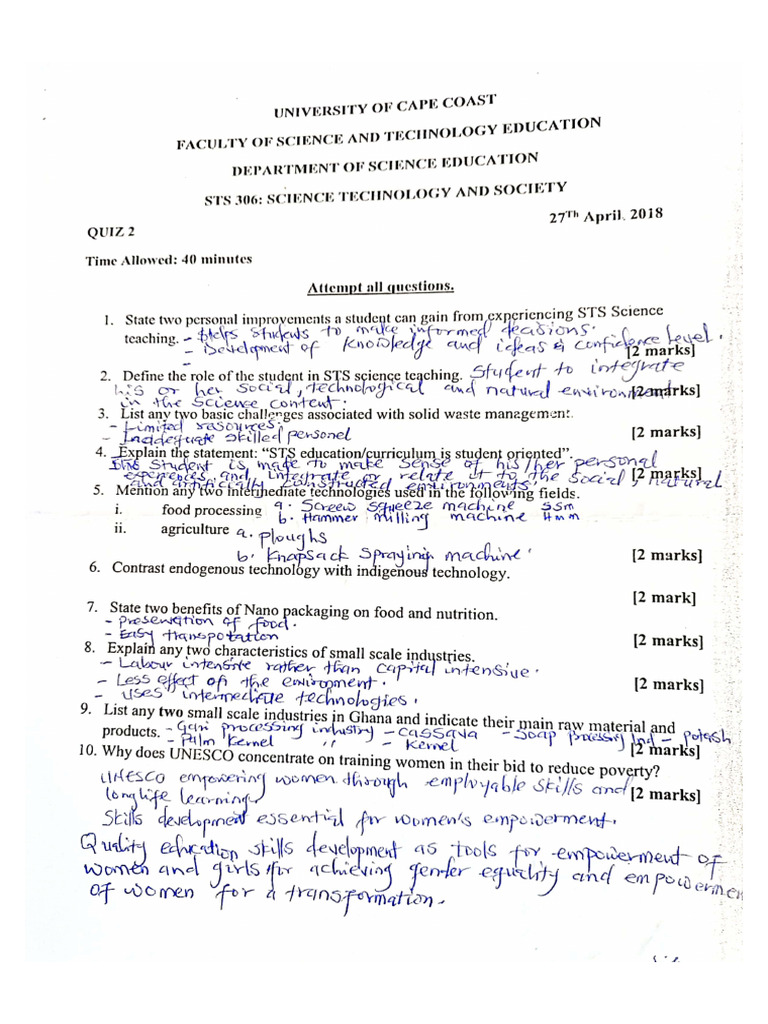 UNIVERSITY OF CAPE COAST
FACULTY OF SCIENCE AND TECHNOLOGY EDUCATION
DEPARTMENT OF SCIENCE EDUCATION
STS 306: SCIENCE TECHNOLOGY AND SOCIETY
27Th April, 2018
QUIZ 2
Time Allowed: 40 minutes
Attempt all questions.
1. State two personal improvements a student can gain from experiencing STS Science
teaching. - Helps students to make informed decisions.
- Development of knowledge and ideas & confidence level.
[2 marks]
2. Define the role of the student in STS science teaching. Student to integrate
his or her social, technological and natural environment [2 marks]
in the science content.
3. List any two basic challenges associated with solid waste management.
- Limited rasources.
- Inadequate skilled personel [2 marks]
4. Explain the statement: “STS education/curriculum is student oriented”.
The student is made to make sense of his/her personal
experiences, and integrate or relate it to the social, natural [2 marks]
and artificially constructed environments.
5. Mention any two intermediate technologies used in the following fields.
i. food processing a. Screw squeeze machine SSM
b. Hammer milling machine Hmm
ii. agriculture a. ploughs
b. Knapsack Spraying machine. [2 marks]
6. Contrast endogenous technology with indigenous technology.
[2 mark]
7. State two benefits of Nano packaging on food and nutrition.
- preservation of food.
- Easy transpotation [2 marks]
8. Explain any two characteristics of small scale industries.
- Labour intensite rather than capital intensive.
- Less effect on the environment. [2 marks]
- uses intermediate technologies.
9. List any two small scale industries in Ghana and indicate their main raw material and
products. - Gari processing industry - cassava - Soap processing ind - potash
- Palm kernel " - kernel [2 marks]
10. Why does UNESCO concentrate on training women in their bid to reduce poverty?
UNESCO empowering women through employable skills and
longlife learning [2 marks]
Skills development essential for women's empowerment.
Quality education skills development as tools for empowerment of
women and girls for achieving gender equality and empowermen
of women for a transformation.